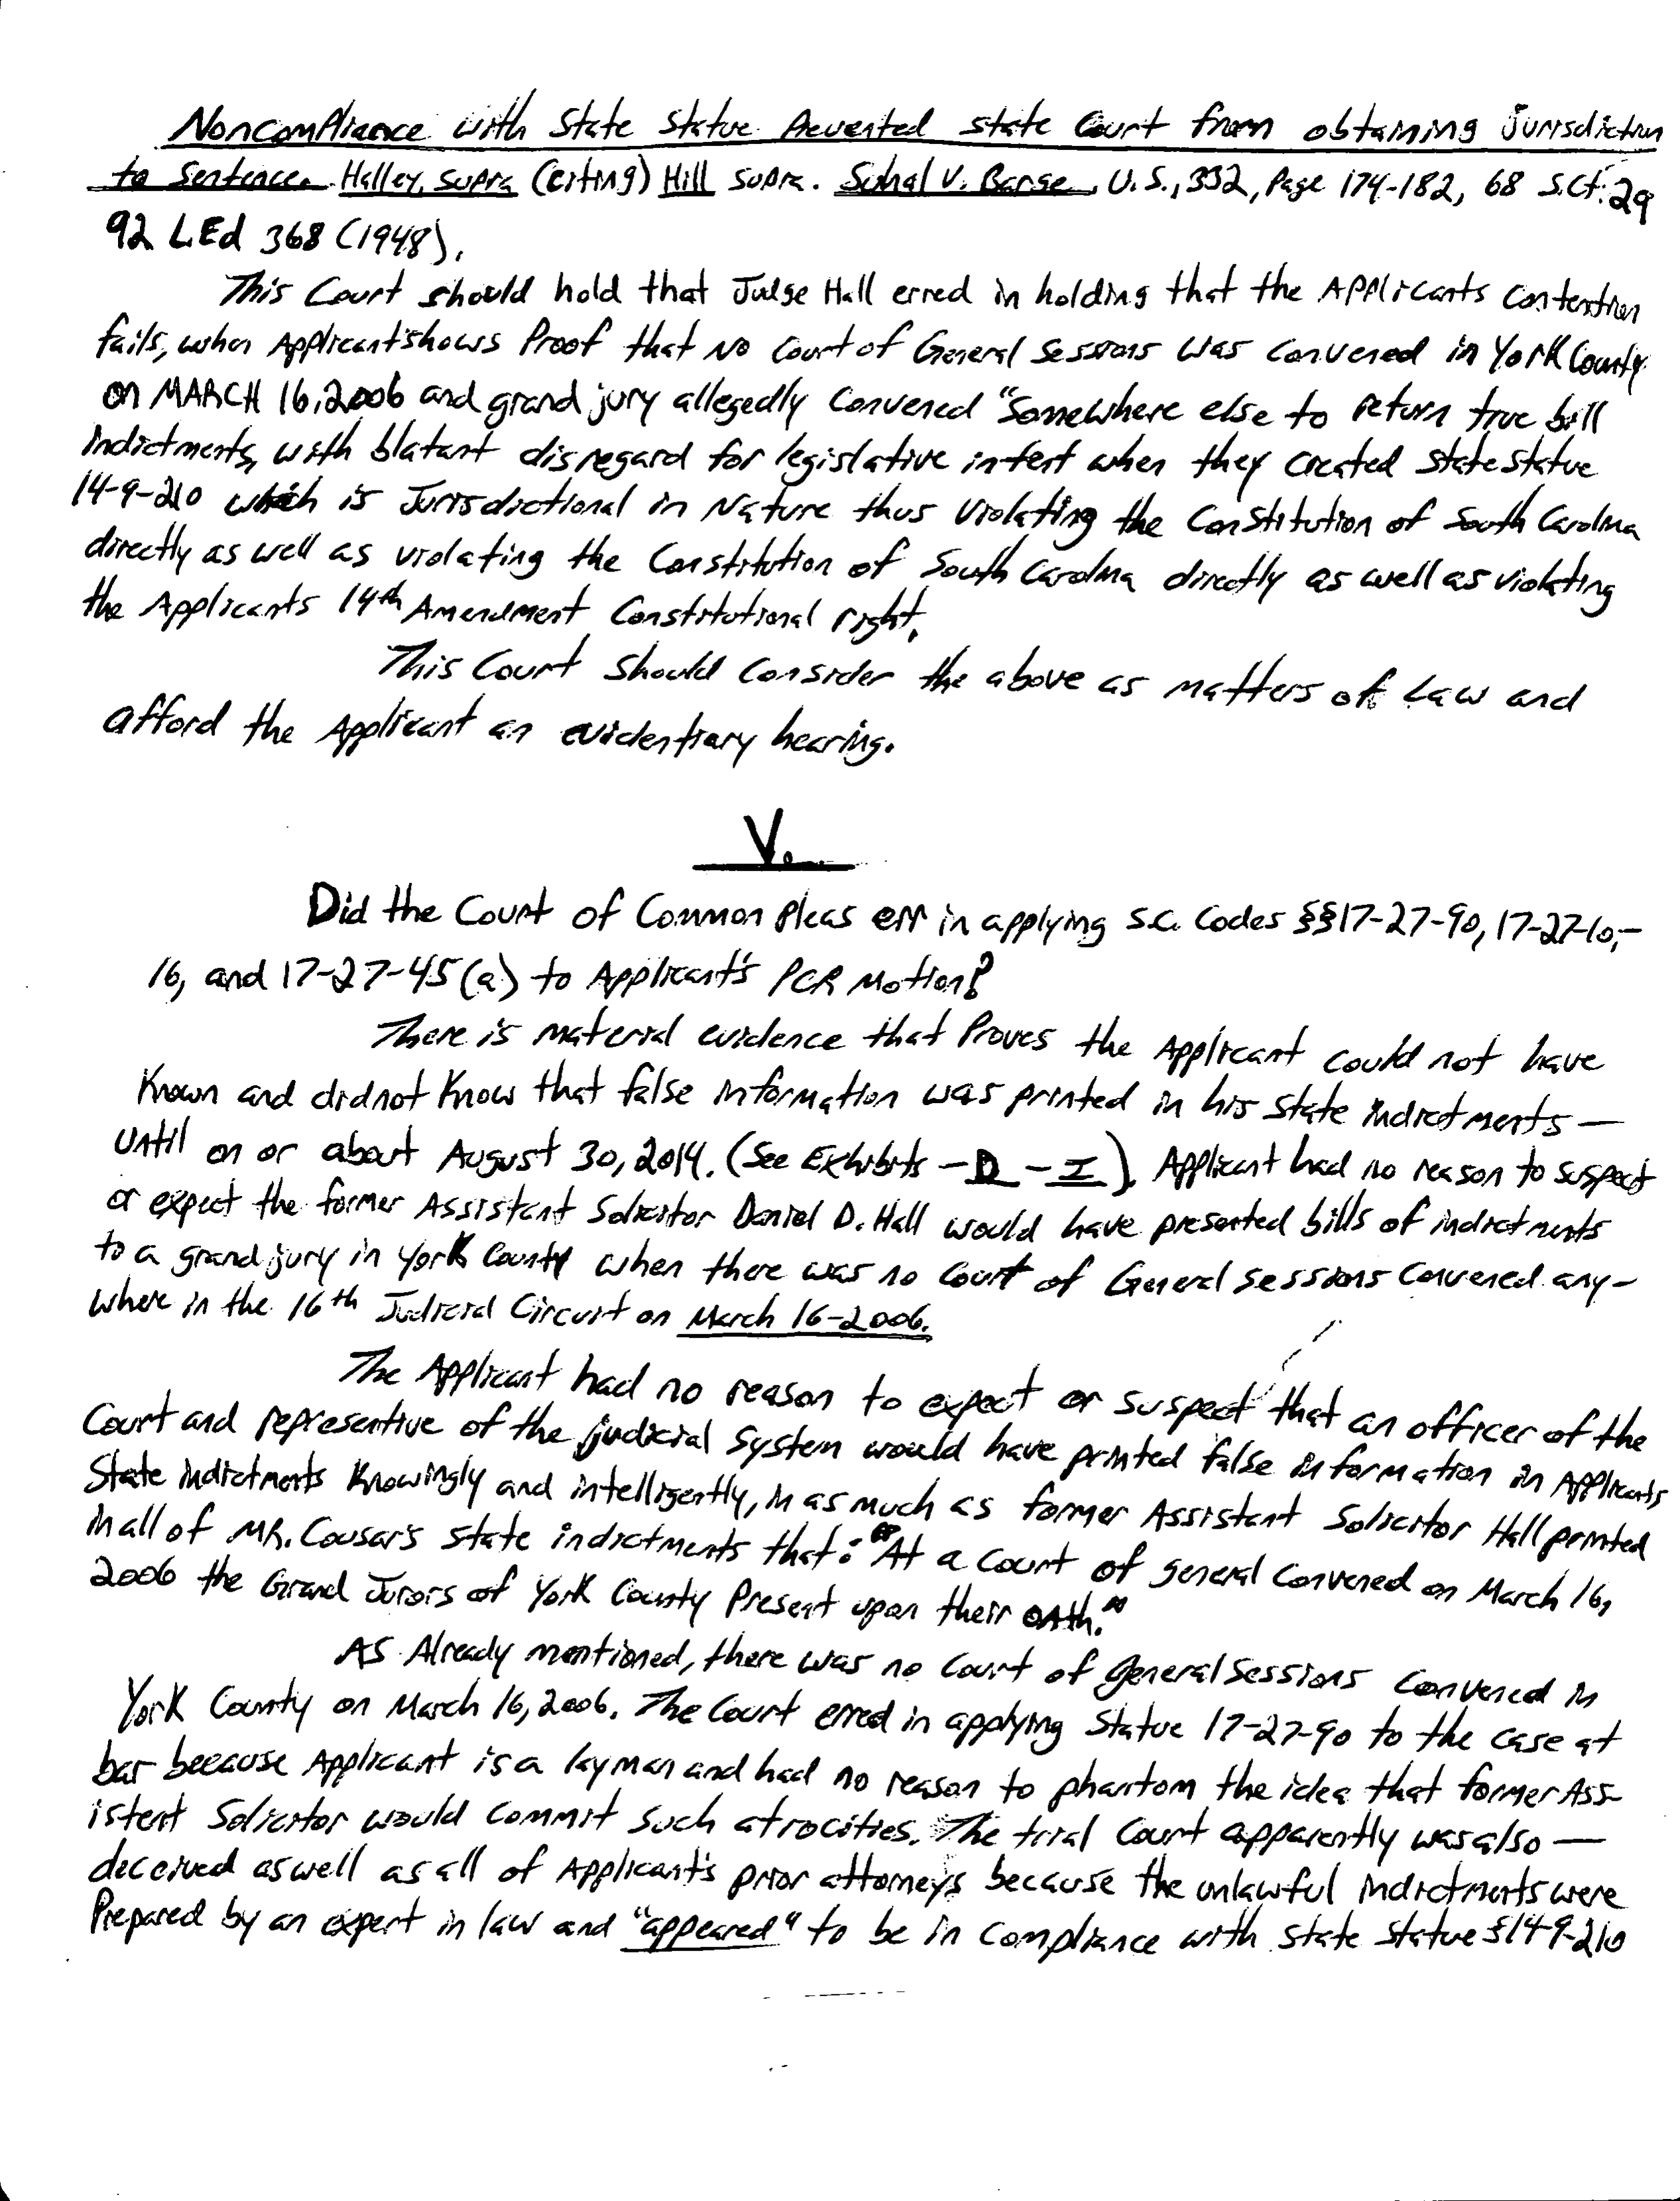 Noncompliance with State Statue Prevented state Court from obtaining Jurisdiction
to Sentence. Halley, supra (citing) Hill supra. Suhal v. Barge, U.S., 332, Page 174-182, 68 S.Ct. 29
92 L.Ed 368 (1948).
This Court should hold that Judge Hall erred in holding that the Applicants Contention
fails, when Applicant shows Proof that no Court of General Sessions was convened in York County
on MARCH 16, 2006 and grand jury allegedly convened "Somewhere else to return true bill
indictments, with blatant disregard for legislative intent when they created State Statue
14-9-210 which is Jurisdictional in Nature thus Violating the Constitution of South Carolina
directly as well as violating the Constitution of South Carolina directly as well as violating
the Applicants 14th Amendment Constitutional right.
This Court should consider the above as matters of Law and
afford the Applicant an evidentiary hearing.
V.
Did the Court of Common Pleas err in applying S.C. Codes §§17-27-90, 17-27-10,-
16, and 17-27-45(a) to Applicant's PCR Motion?
There is material evidence that Proves the Applicant could not have
Known and did not Know that false information was printed in his State indictments —
until on or about August 30, 2014. (See Exhibits - D - I). Applicant had no reason to suspect
or expect the former Assistant Solicitor Daniel D. Hall would have presented bills of indictments
to a grand jury in York County when there was no Court of General Sessions Convened any-
where in the 16th Judicial Circuit on March 16-2006.
The Applicant had no reason to expect or suspect that an officer of the
Court and representive of the judicial System would have printed false information in Applicants
State indictments Knowingly and intelligently, in as much as former Assistant Solicitor Hall printed
in all of MR. Cousar's state indictments that: "At a Court of general Convened on March 16,
2006 the Grand Jurors of York County Present upon their oath."
As Already mentioned, there was no Court of General Sessions Convened in
York County on March 16, 2006. The Court erred in applying Statue 17-27-90 to the case at
bar because Applicant is a layman and had no reason to phantom the idea that former Ass-
istent Solicitor would commit such atrocities. The trial Court apparently was also —
deceived as well as all of Applicant's prior attorneys because the unlawful indictments were
Prepared by an expert in law and "appeared" to be in compliance with State Statue §14-9-210